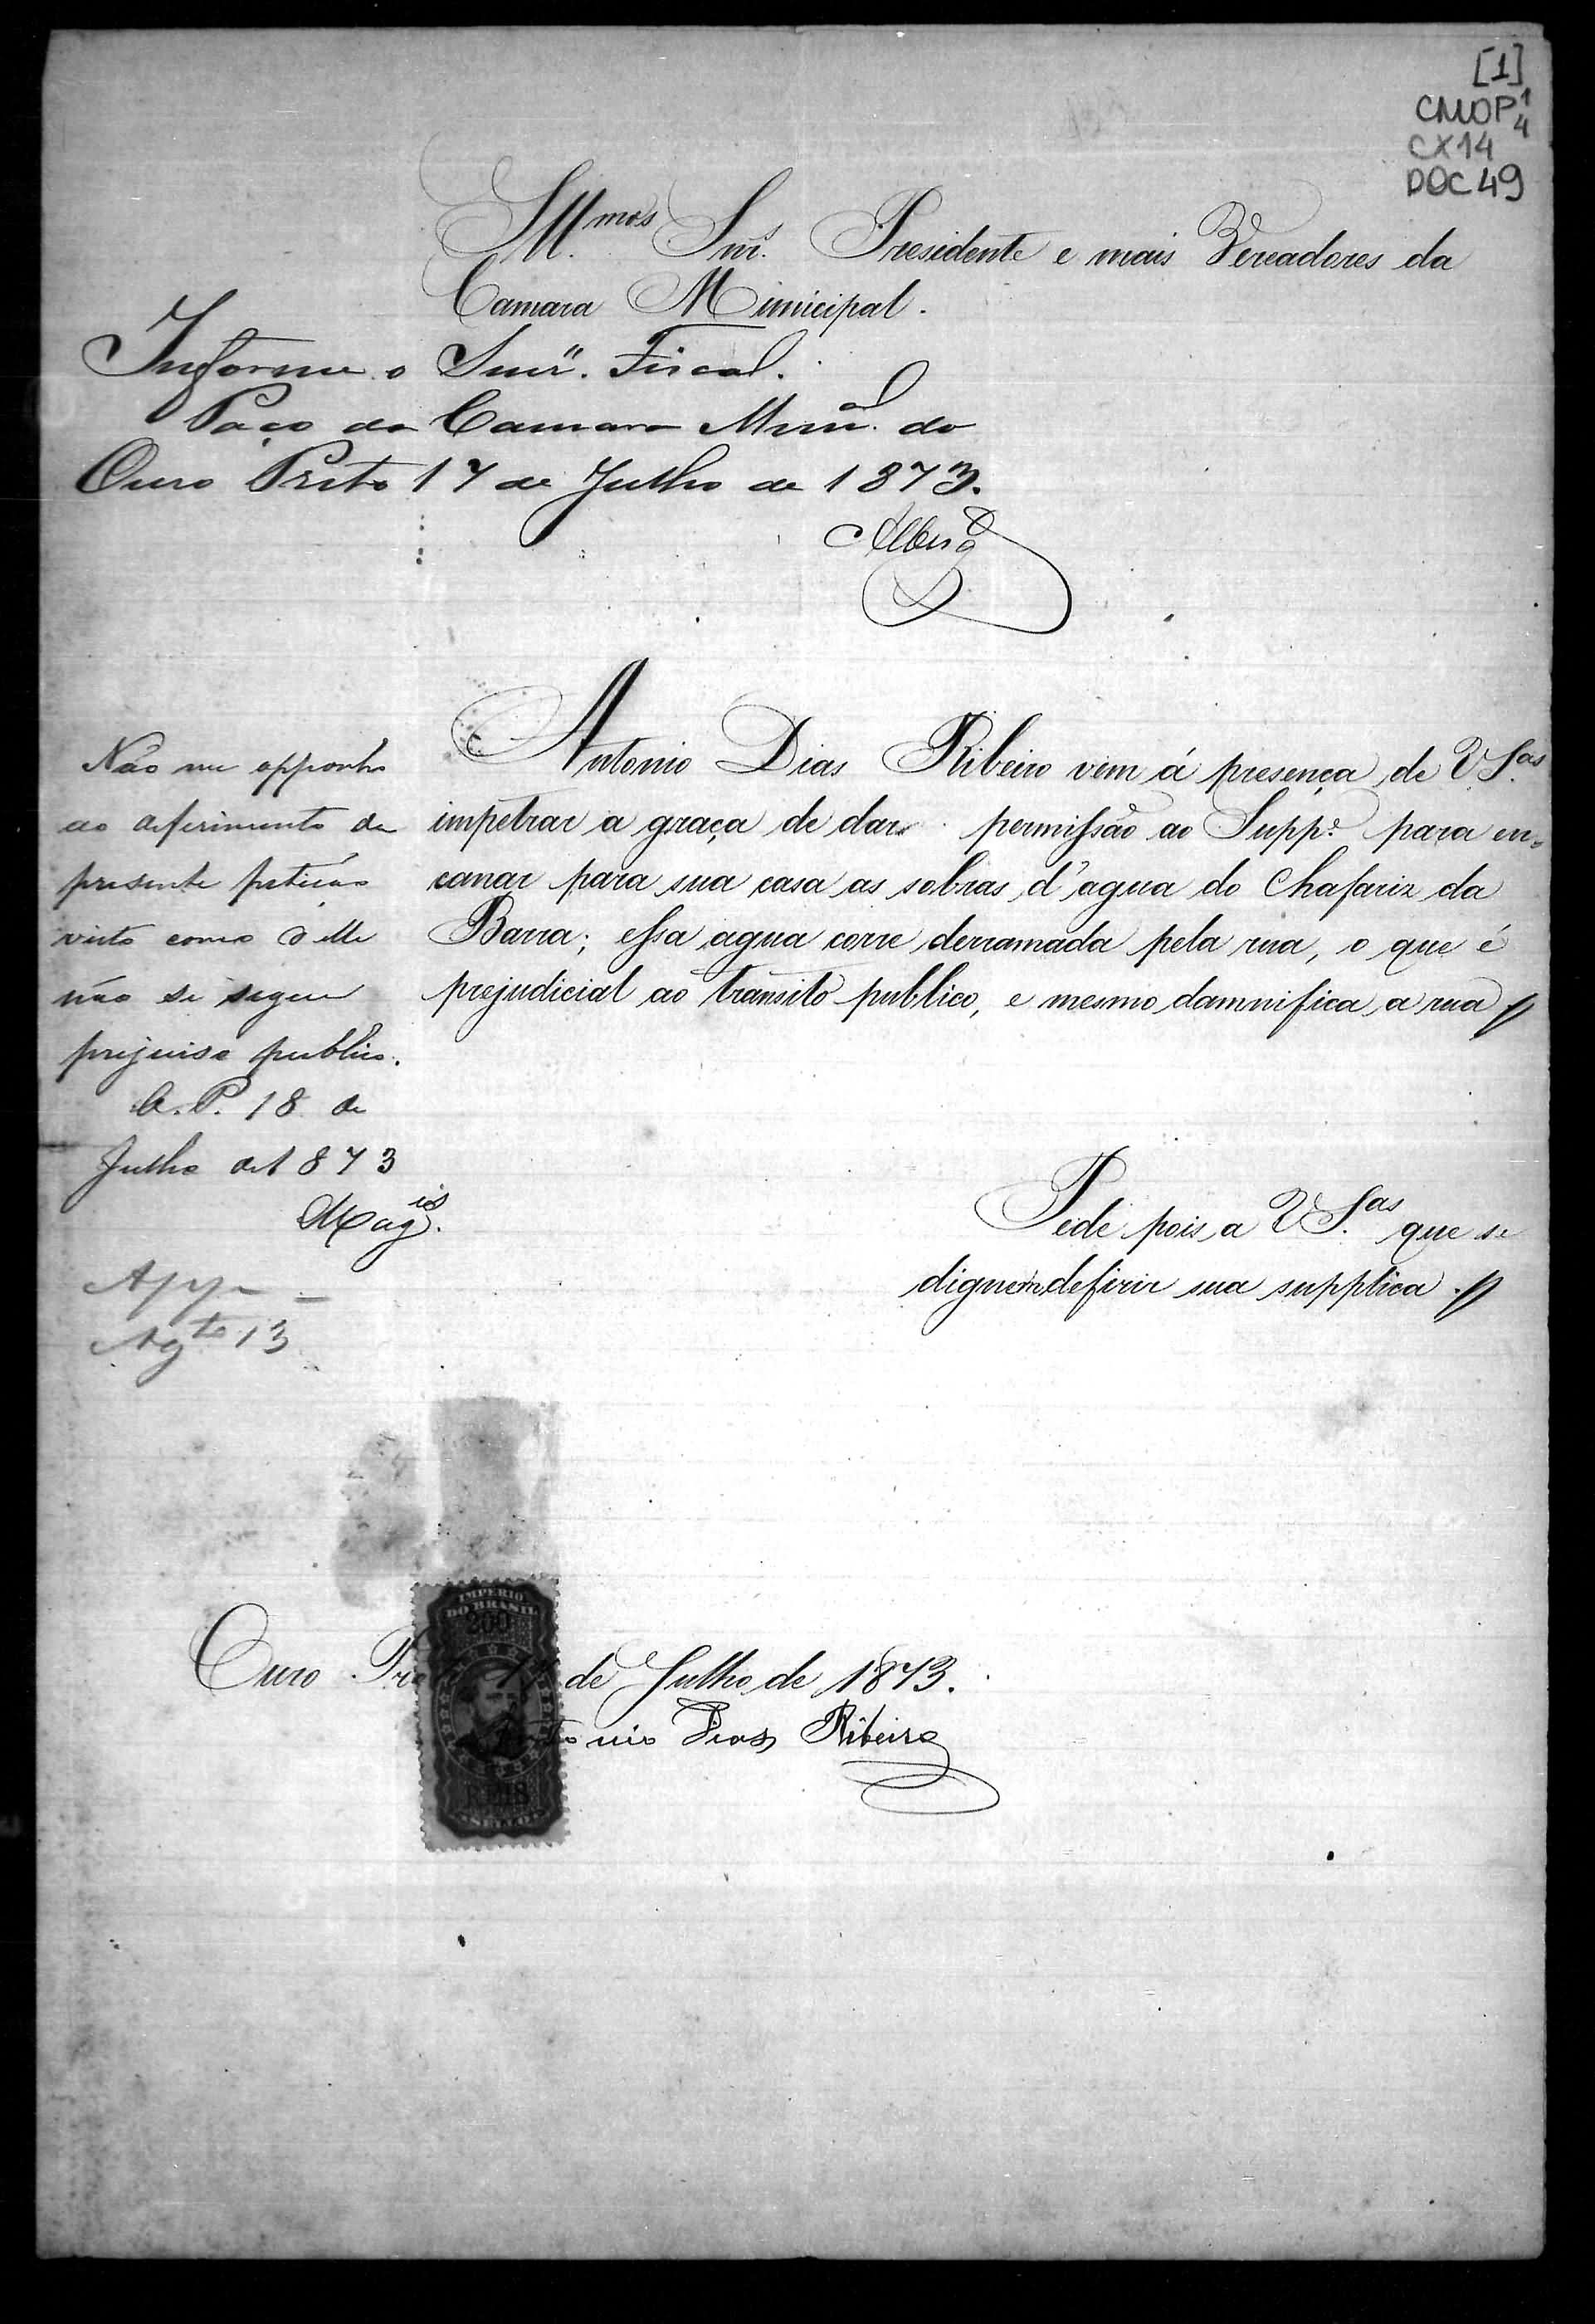 [1]
CMOP 1/4
CX14
DOC 49
Illmos Snrs. Presidente e mais Vereadores da
Camara Municipal.
Informe o Snr. Fiscal.
Paço da Camara Munal. do
Ouro Preto 17 de Julho de 1873.
Antonio Dias Ribeiro vem á presença de VSas.
impetrar a graça de dar permissão ao Suppe. para en-
canar para sua casa as sobras d'agua do Chafariz da
Barra; essa agua corre derramada pela rua, o que é
prejudicial ao transito publico, e mesmo damnifica a rua
Não me opponho
ao deferimento da
presente petição
visto como delle
não se segue
prejuiso publico.
O.P. 18 de
Julho de 1873
Magis.
App
Agto 13
Pede pois a VSas. que se
dignem defirir sua supplica
IMPERIO
DO BRASIL
200
REIS
SELLO
Ouro Pre de Julho de 1873.
Antonio Dias Ribeiro